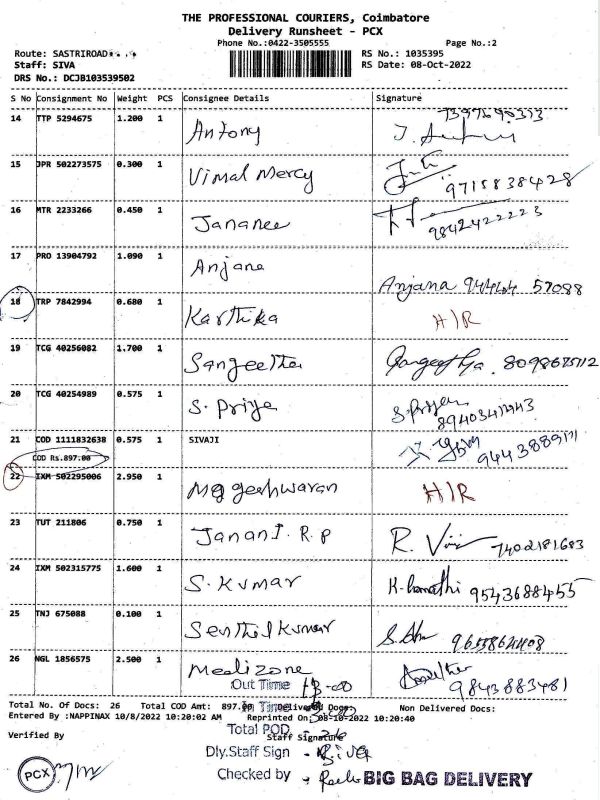 THE PROFESSIONAL COURIERS, Coimbatore
Delivery Runsheet - PCX
Phone No.:0422-3505555 Page No.:2
Route: SASTRIROAD RS No.: 1035395
Staff: SIVA RS Date: 08-Oct-2022
DRS No.: DCJB103539502
S No Consignment No Weight PCS Consignee Details Signature
14 TTP 5294675 1.200 1 Antony
15 JPR 502273575 0.300 1 Vimal Mercy 9715838428
16 MTR 2233266 0.450 1 Jananee 9842422223
17 PRO 13904792 1.090 1 Anjana Anjana 94444 57088
18 TRP 7842994 0.680 1 Karthika H/R
19 TCG 40256082 1.700 1 Sangeetha
20 TCG 40254989 0.575 1 S. Priya S. Priya
21 COD 1111832638 0.575 1 SIVAJI
COD Rs.897.00
22 IXM 502295006 2.950 1 H/R
23 TUT 211806 0.750 1 Janani. R. P R. 7402181683
24 IXM 502315775 1.600 1 S. Kumar 9543688455
25 TNJ 675088 0.100 1 Senthil Kumar
26 NGL 1856575 2.500 1 Medizone 9843883481
Out Time
Total No. Of Docs: 26 Total COD Amt: 897.00 Delivered Docs: Non Delivered Docs:
In Time
Entered By :NAPPINAX 10/8/2022 10:20:02 AM Reprinted On: 08-10-2022 10:20:40
Total POD - 26
Verified By Staff Signature
Dly.Staff Sign - Siva
Checked by
PCX BIG BAG DELIVERY